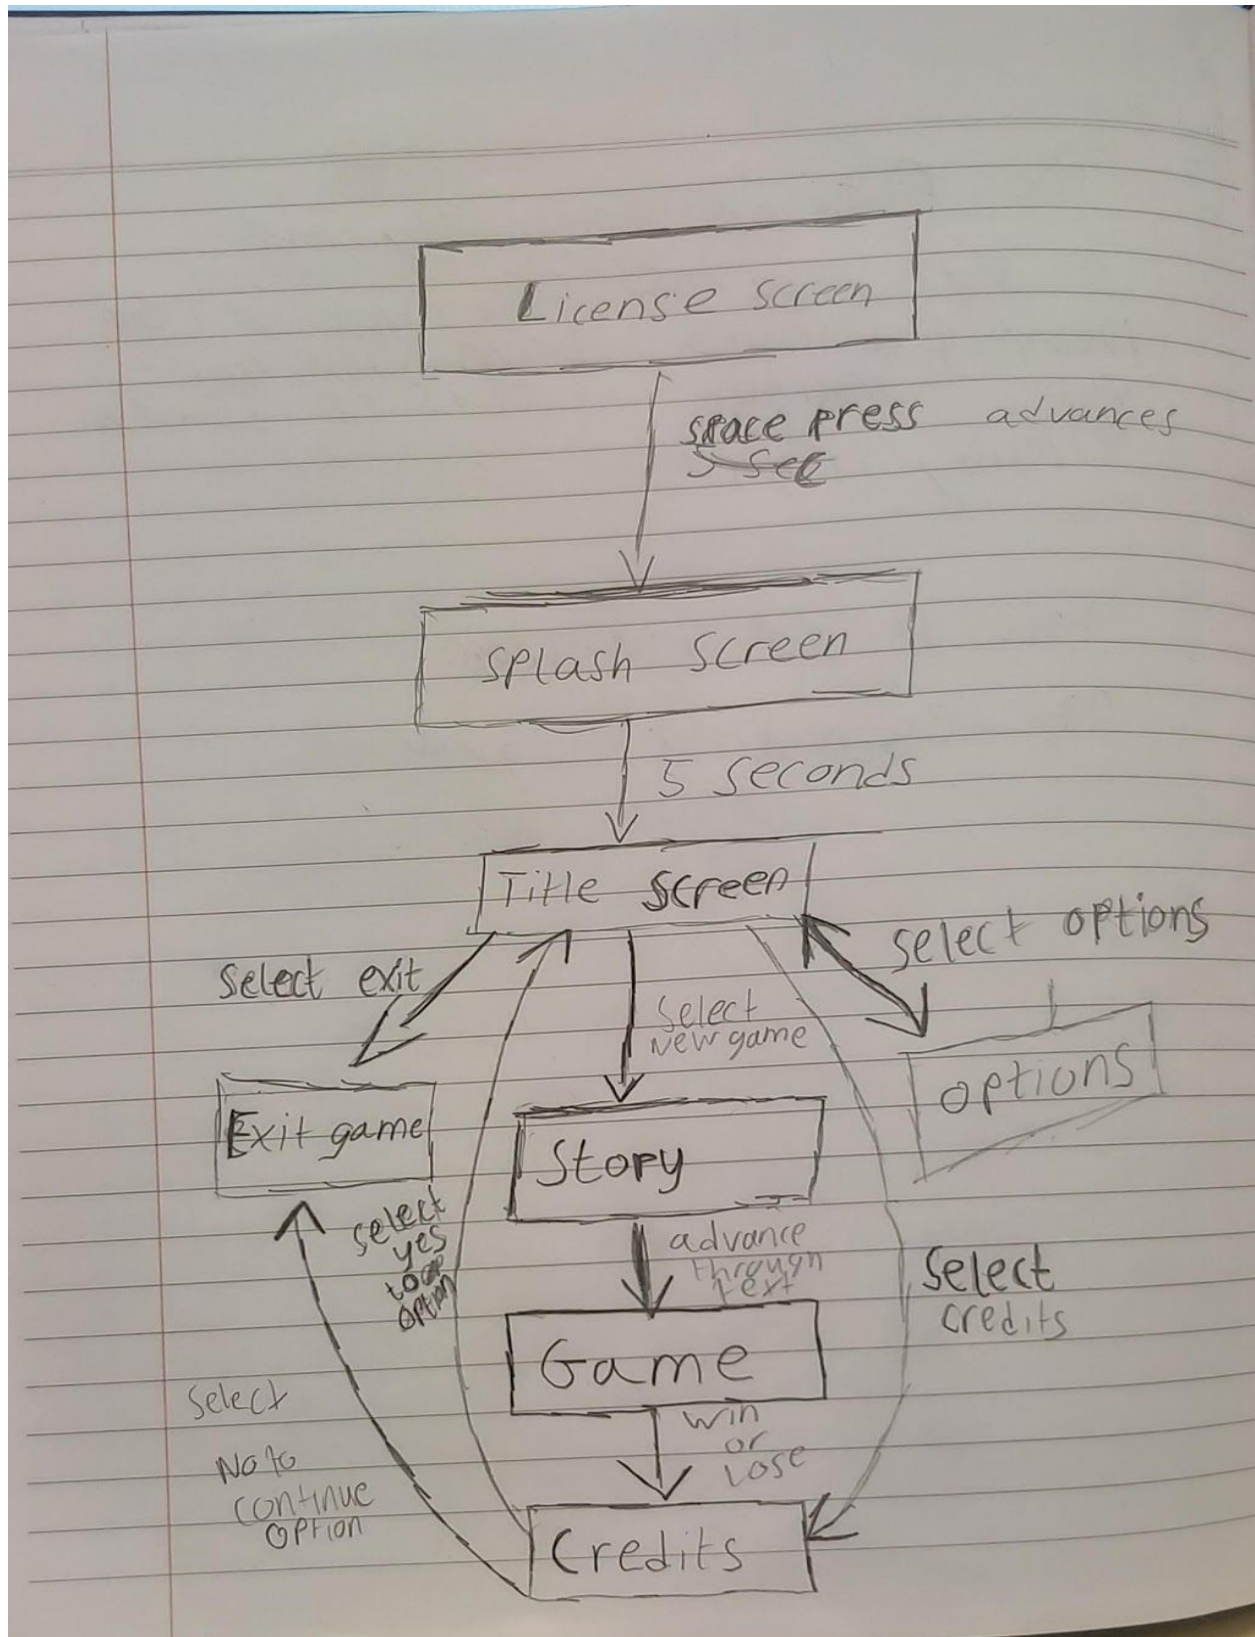 License screen
space press advances
5 sec
Splash Screen
5 seconds
Title Screen
Select exit
Select options
Select
New game
options
Exit game
Story
select
yes
to
option
advance
through
text
Select
credits
Game
Select
No to
continue
option
win
or
Lose
Credits